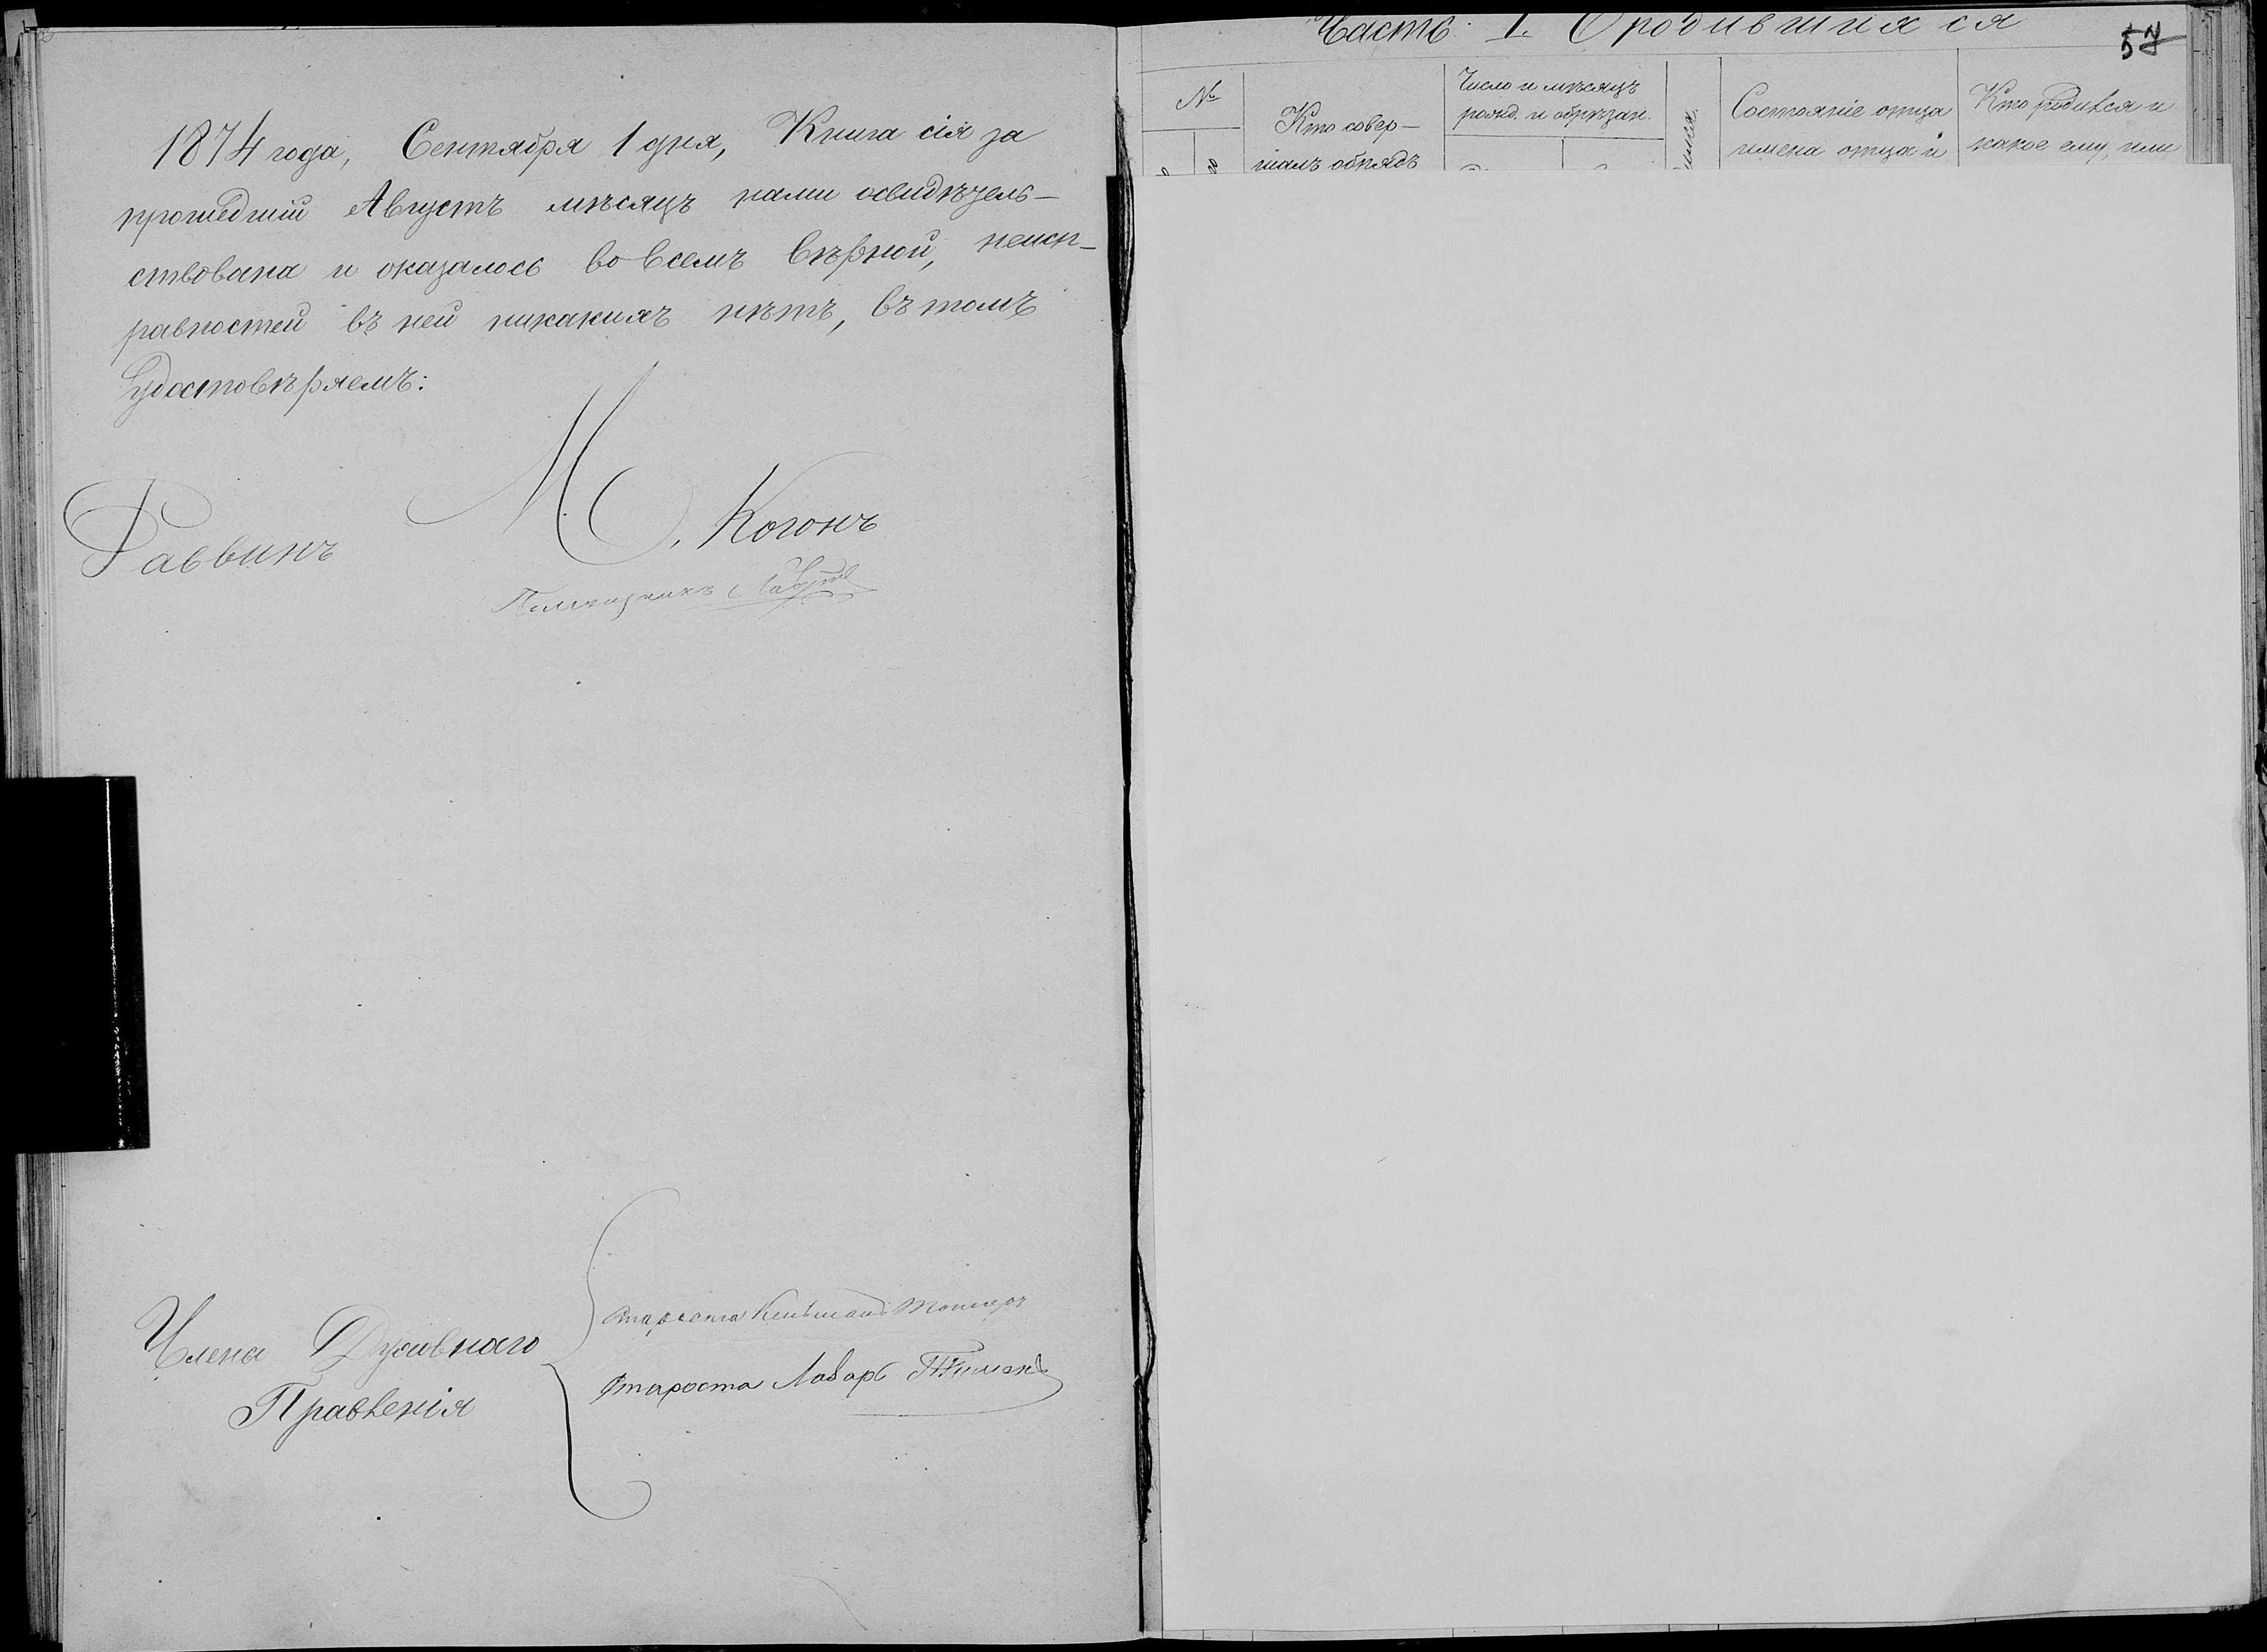 1874 года, Сентября 1 дня, Книга сія за
прошедшій Августъ мѣсяцъ нами освидѣтель-
ствована и оказалось во всемъ вѣрной, неисп-
равностей въ ней никакихъ нѣтъ, въ томъ
Удостовѣряемъ:
Раввинъ М. Когонъ
Члены Духовнаго
Правленія
Староста
Староста Лазарь
Часть I. О родившихся
57
№
Кто совер-
шалъ обрядъ
Число и мѣсяцъ
рожд. и обрѣзан.
Состояніе отца
имена отца и
Кто родился и
какое ему, или